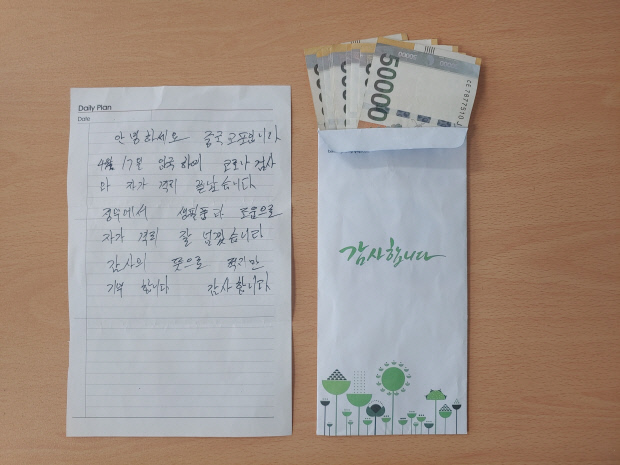 Daily Plan
Date
안녕하세요 중국교포입니다
4월 17일 입국하여 코로나 검사
다 자가 격리 끝났습니다
정부에서 생필품다 도움으로
자가 격리 잘 넘겼습니다
감사의 뜻으로 적지만
기부 합니다 감사합니다
50000
감사합니다